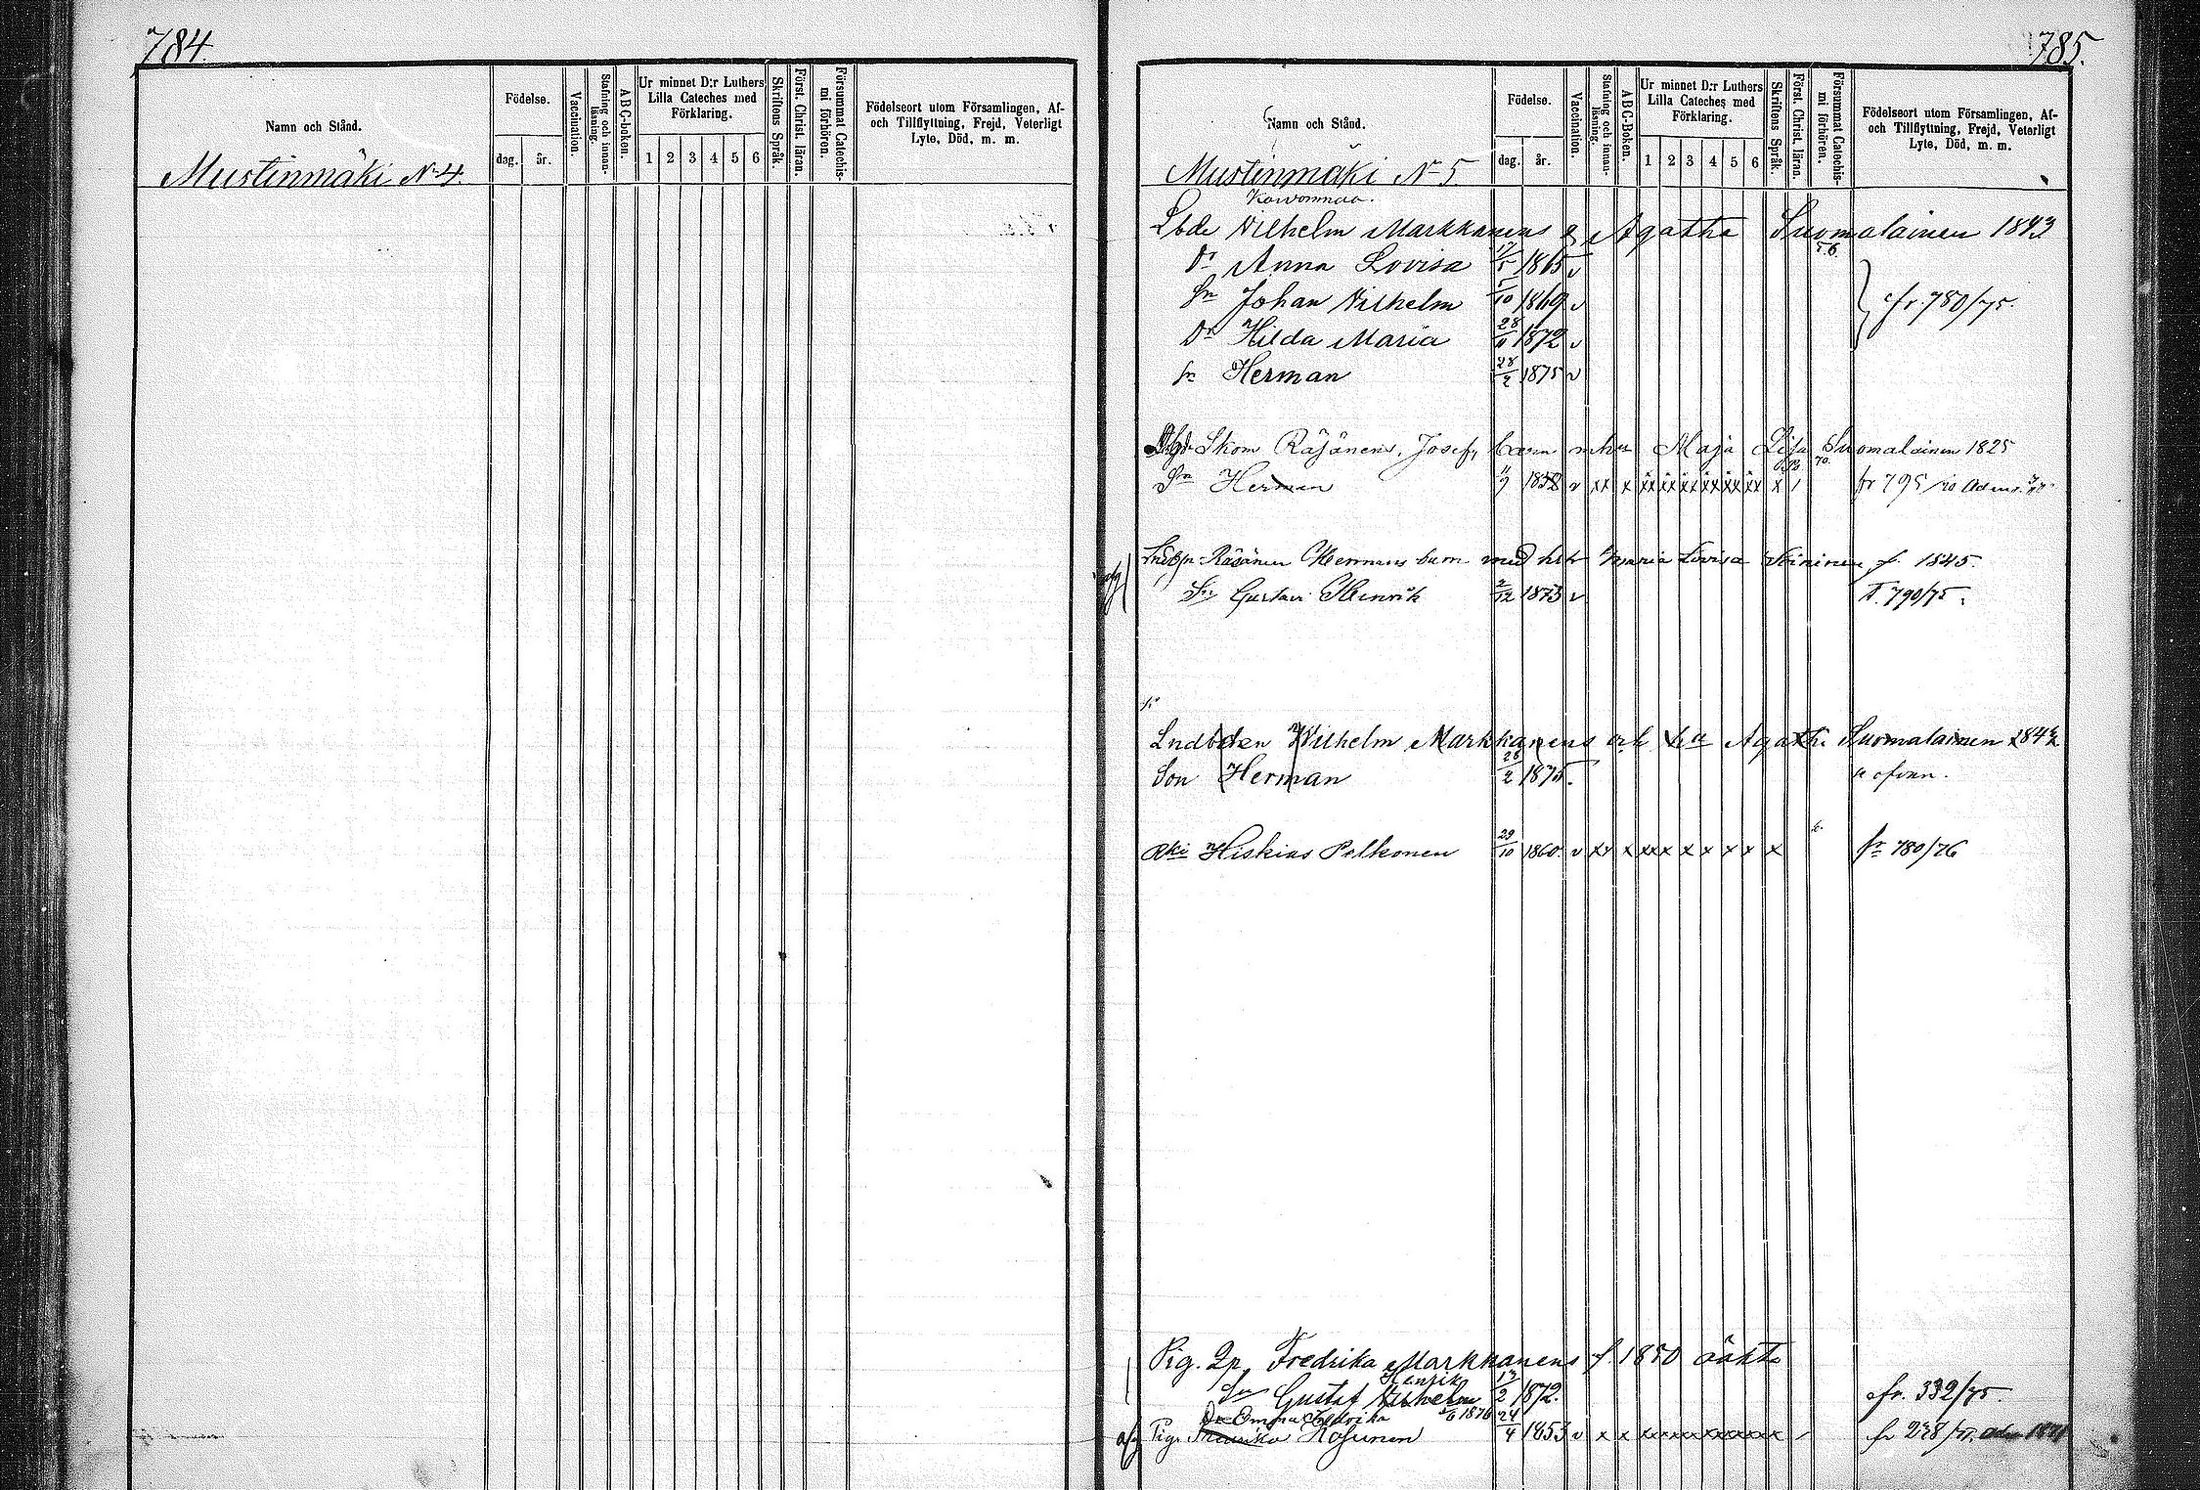 784.
Namn och Stånd.
Födelse.
dag. år.
Vaccination.
Stafning och innan-läsning.
ABC-boken.
Ur minnet D:r Luthers Lilla Cateches med Förklaring.
1 2 3 4 5 6
Skriftens Språk.
Först. Christ. läran.
Försummat Catechis-mi förhören.
Födelseort utom Församlingen, Af-
och Tillflyttning, Frejd, Veterligt
Lyte, Död, m. m.
Mustinmäki N 4.
785.
Namn och Stånd.
Födelse.
dag. år.
Vaccination.
Stafning och innan-läsning.
ABC-Boken.
Ur minnet D:r Luthers Lilla Cateches med Förklaring.
1 2 3 4 5 6
Skriftens Språk.
Först. Christ. läran.
Försummat Catechis-mi förhören.
Födelseort utom Församlingen, Af-
och Tillflyttning, Frejd, Veterligt
Lyte, Död, m. m.
Mustinmäki N 5.
Lbde Vilhelm Markkanens & Agatha Suomalainen 1843
Dr Anna Lovisa 17/5 1865 v
Sn Johan Vilhelm 5/10 1869 v cfr. 780/75.
Dr Hilda Maria 28/11 1872 v
Sn Herman 28/2 1875 v
Skom Räsänens, Josef, barn m hu Maja Lisa Suomalainen 1825
Sn Herman 1852 v xx x xx xx xx xx xx xx x / fr 795
Räsänen Hermans barn med hstr Maria Lovisa Soininen f. 1845.
Sn Gustav Henrik 2/12 1873 v T. 790/75.
Lndbden Wilhelm Markkanens och hu Agatha Suomalainen 1843
Son Herman 28/2 1875.
Hiskias Pelkonen 29/10 1860. v xx x xxx x x x x x fr 780/76
Pig. Fredrika Markkanens f. 1850 oäkta
Henrik
Sn Gustaf Wilhelm 17/2 1872. cfr. 332/75.
Dr Emma Fredrika 1876
afg Pig. Kosunen 24/4 1853 v x x fr 238